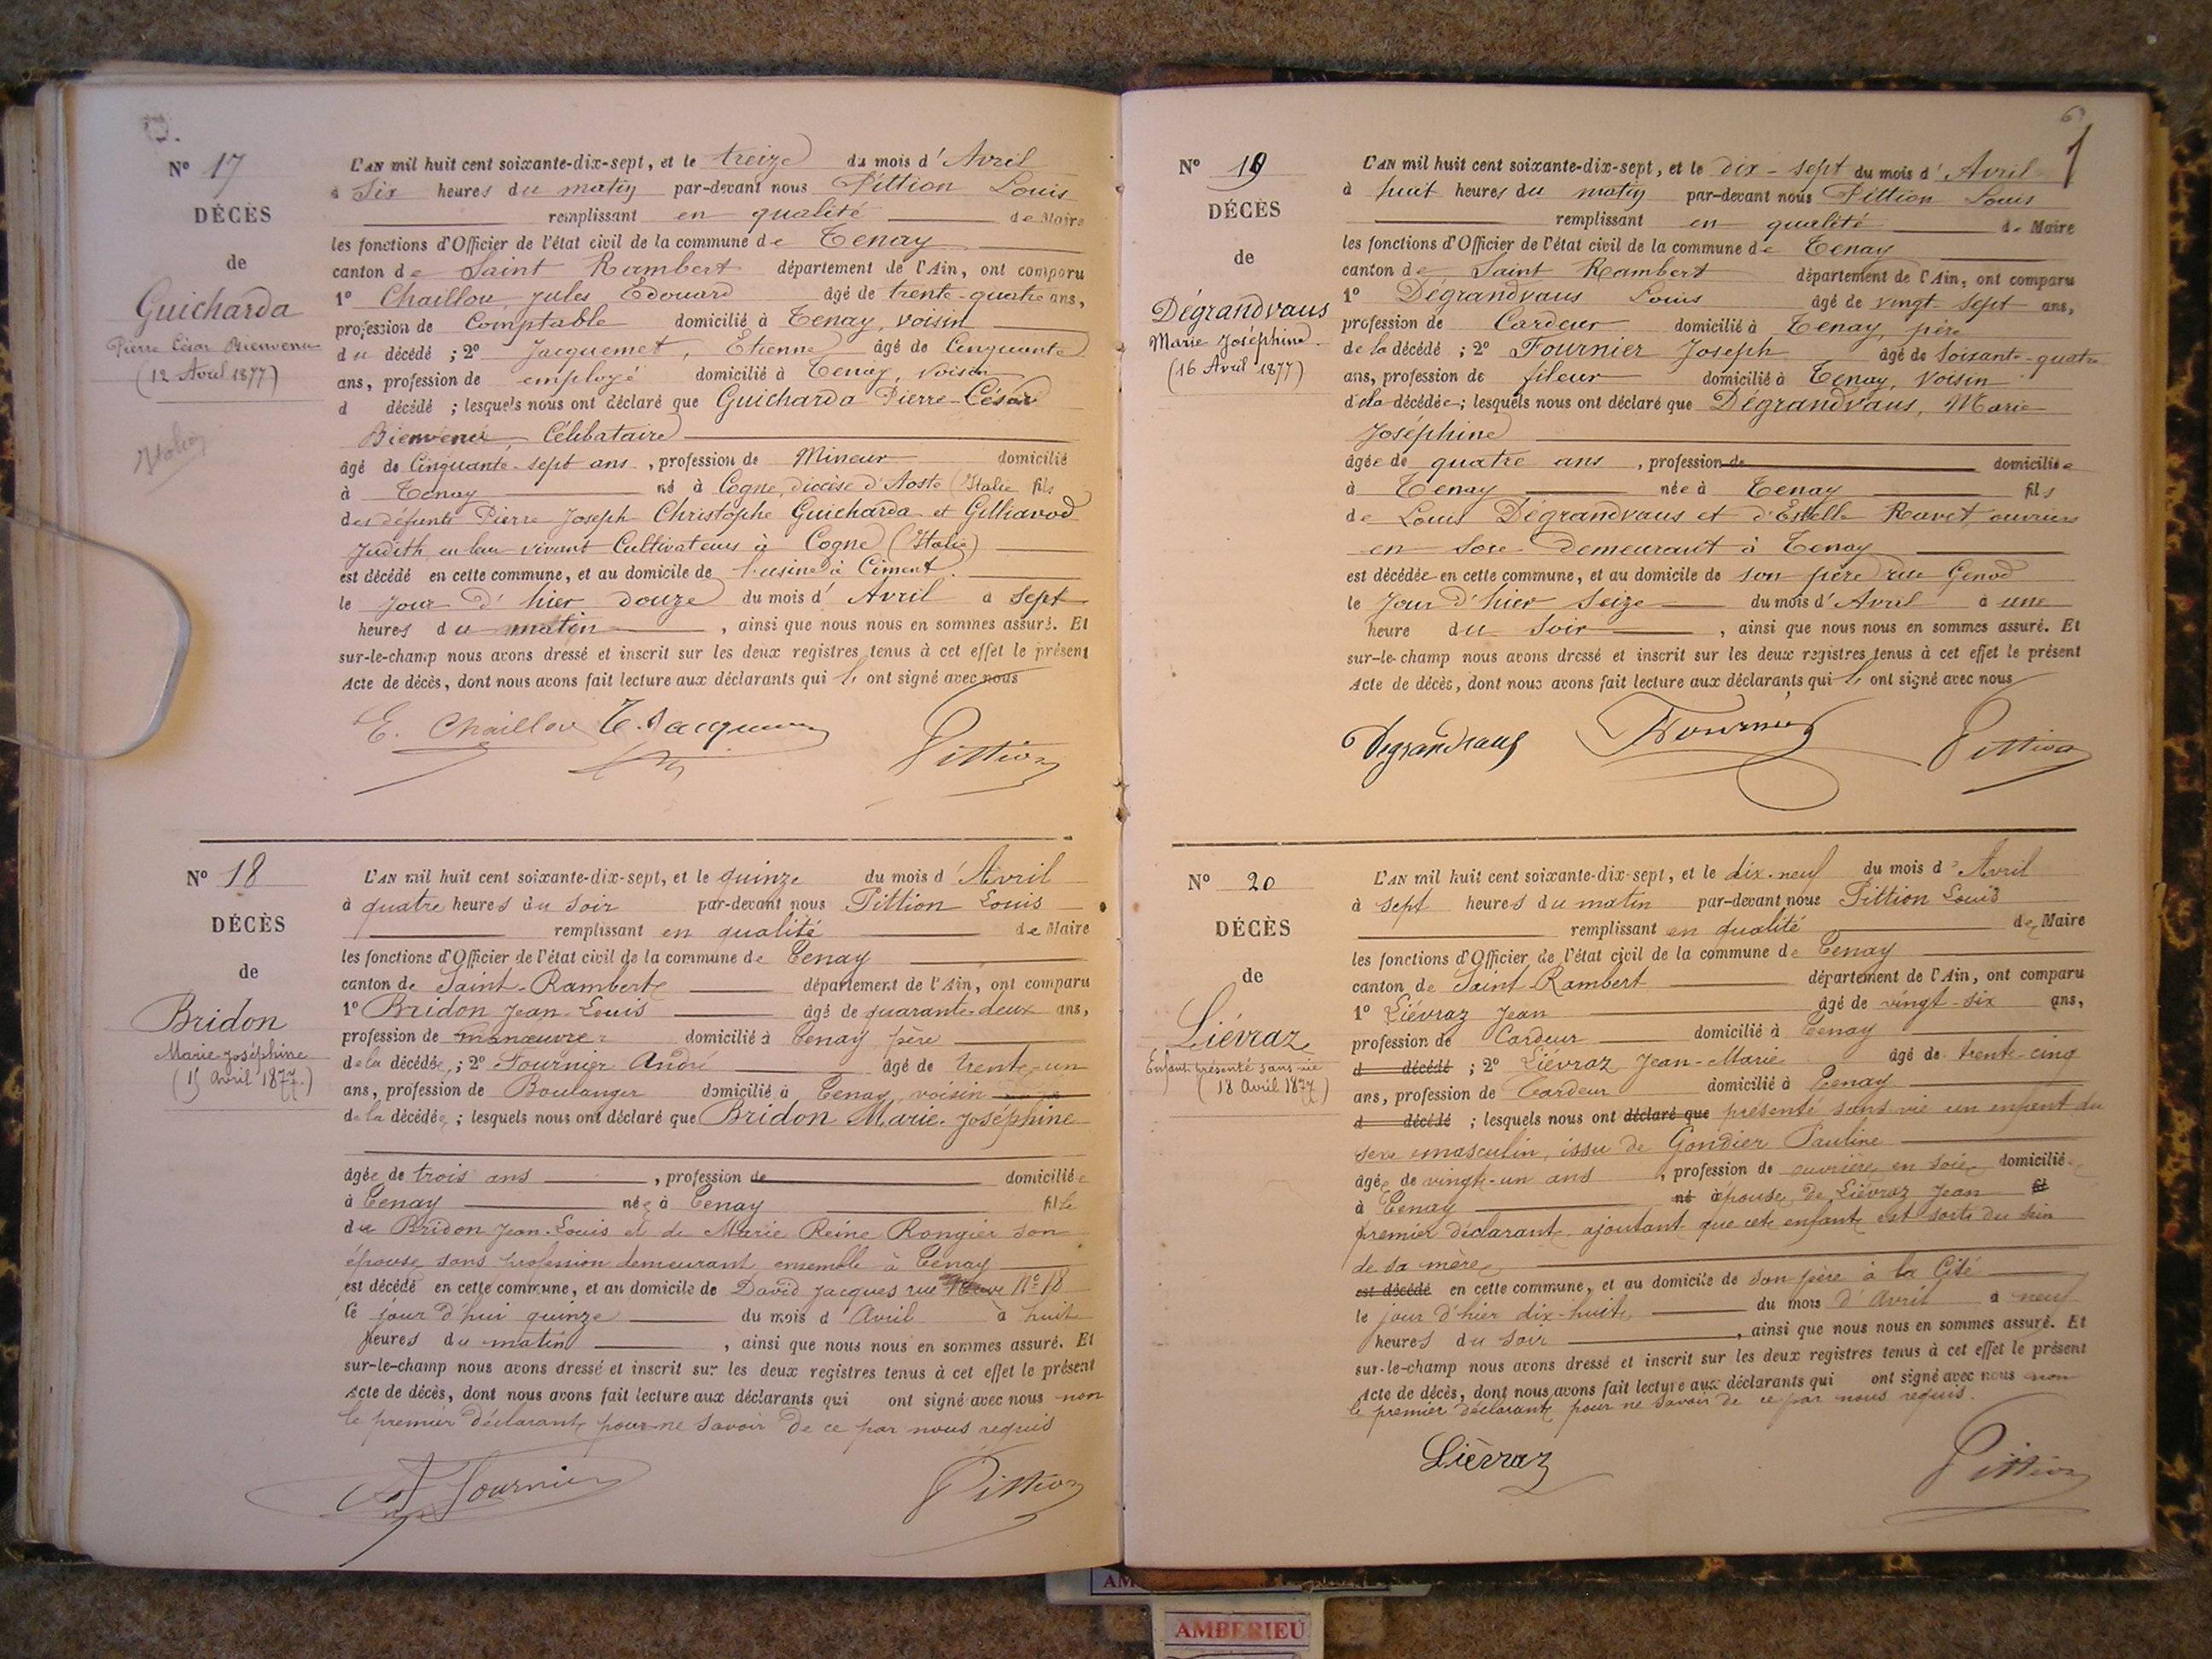 N° 17
DÉCÈS
de
Guicharda
Pierre César Bienvenu
(12 Avril 1877)
Italie
L'AN mil huit cent soixante-dix-sept, et le treize du mois d'Avril
à Six heures du matin par-devant nous Pittion Louis
remplissant en qualité de Maire
les fonctions d'Officier de l'état civil de la commune de Tenay
canton de Saint Rambert département de l'Ain, ont comparu
1° Chaillou, Jules Édouard âgé de trente-quatre ans,
profession de Comptable domicilié à Tenay, voisin
du décédé ; 2° Jacquemet, Étienne âgé de Cinquante
ans, profession de employé domicilié à Tenay, voisin
d décédé ; lesquels nous ont déclaré que Guicharda Pierre-César
Bienvenu, Célibataire
âgé de Cinquante-sept ans, profession de Mineur domicilié
à Tenay né à Cogne, diocèse d'Aoste (Italie fils
des défunts Pierre Joseph Christophe Guicharda et Gilliavod
Judith en leur vivant Cultivateurs à Cogne (Italie)
est décédé en cette commune, et au domicile de l'usine à Ciment.
le jour d'hier douze du mois d'Avril à sept
heures du matin, ainsi que nous nous en sommes assuré. Et
sur-le-champ nous avons dressé et inscrit sur les deux registres tenus à cet effet le présent
Acte de décès, dont nous avons fait lecture aux déclarants qui l' ont signé avec nous
E. Chaillou E. Jacquemet Pittion
N° 18
DÉCÈS
de
Bridon
Marie Joséphine
(15 avril 1877.)
L'AN mil huit cent soixante-dix-sept, et le quinze du mois d'Avril
à quatre heures du soir par-devant nous Pittion Louis
remplissant en qualité de Maire
les fonctions d'Officier de l'état civil de la commune de Tenay
canton de Saint-Rambert département de l'Ain, ont comparu
1° Bridon Jean-Louis âgé de quarante-deux ans,
profession de manœuvre domicilié à Tenay père
de la décédée ; 2° Fournier André âgé de trente-un
ans, profession de Boulanger domicilié à Tenay, voisin
de la décédée ; lesquels nous ont déclaré que Bridon Marie-Joséphine
âgée de trois ans, profession de domiciliée
à Tenay née à Tenay fille
de Bridon Jean-Louis et de Marie Reine Rongier son
épouse sans profession demeurant ensemble à Tenay
est décédé en cette commune, et au domicile de David Jacques rue Neuve N° 18
le jour d'hui quinze du mois d'Avril à huit
heures du matin, ainsi que nous nous en sommes assuré. Et
sur-le-champ nous avons dressé et inscrit sur les deux registres tenus à cet effet le présent
Acte de décès, dont nous avons fait lecture aux déclarants qui ont signé avec nous non
le premier déclarant pour ne savoir de ce par nous requis
A Fournier Pittion
N° 19
DÉCÈS
de
Dégrandvaus
Marie Joséphine
(16 Avril 1877)
L'AN mil huit cent soixante-dix-sept, et le dix-sept du mois d'Avril
à huit heures du matin par-devant nous Pittion Louis
remplissant en qualité de Maire
les fonctions d'Officier de l'état civil de la commune de Tenay
canton de Saint Rambert département de l'Ain, ont comparu
1° Dégrandvaus Louis âgé de vingt-sept ans,
profession de Cardeur domicilié à Tenay, père
de la décédé ; 2° Fournier Joseph âgé de Soixante-quatre
ans, profession de fileur domicilié à Tenay, voisin
de la décédée ; lesquels nous ont déclaré que Dégrandvaus, Marie
Joséphine
âgée de quatre ans, profession de domiciliée
à Tenay née à Tenay fils
de Louis Dégrandvaus et d'Estelle Ravet, ouvriers
en soie demeurant à Tenay
est décédée en cette commune, et au domicile de son père rue Genod
le Jour d'hier Seize du mois d'Avril à une
heure du soir, ainsi que nous nous en sommes assuré. Et
sur-le-champ nous avons dressé et inscrit sur les deux registres tenus à cet effet le présent
Acte de décès, dont nous avons fait lecture aux déclarants qui l' ont signé avec nous
Degrandvaus Fournier Pittion
N° 20
DÉCÈS
de
Liévraz
Enfant présenté sans vie
(18 Avril 1877)
L'AN mil huit cent soixante-dix-sept, et le dix-neuf du mois d'Avril
à sept heures du matin par-devant nous Pittion Louis
remplissant en qualité de Maire
les fonctions d'Officier de l'état civil de la commune de Tenay
canton de Saint-Rambert département de l'Ain, ont comparu
1° Liévraz Jean âgé de vingt-six ans,
profession de Cardeur domicilié à Tenay
d décédé ; 2° Liévraz Jean-Marie âgé de trente-cinq
ans, profession de Cardeur domicilié à Tenay
d décédé ; lesquels nous ont déclaré que présenté sans vie un enfant du
sexe masculin, issu de Gondier Pauline
âgée de vingt-un ans, profession de ouvrière en soie domiciliée
à Tenay né à épouse de Liévraz Jean fil
premier déclarant ajoutant que cet enfant est sorti du sein
de sa mère
est décédé en cette commune, et au domicile de son père à la Cité
le jour d'hier dix-huit du mois d'Avril à neuf
heures du soir, ainsi que nous nous en sommes assuré. Et
sur-le-champ nous avons dressé et inscrit sur les deux registres tenus à cet effet le présent
Acte de décès, dont nous avons fait lecture aux déclarants qui ont signé avec nous non
le premier déclarant pour ne savoir de ce par nous requis.
Liévraz Pittion
AMBERIEU